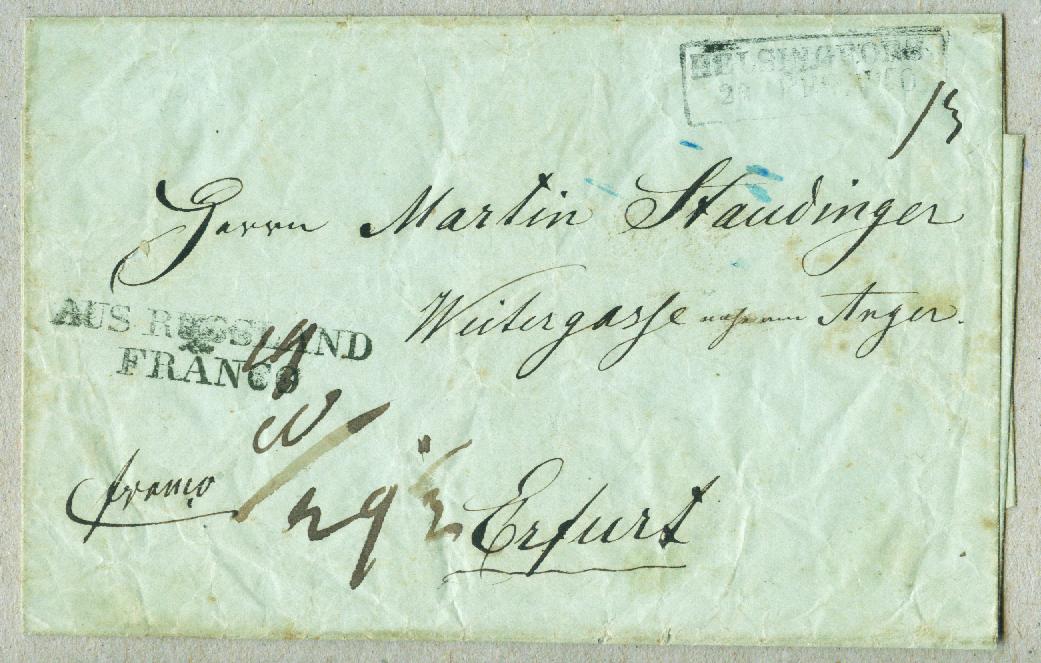 HELSINGFORS
13
Herrn Martin Staudinger
Weitergasse Anger.
AUS RUSSLAND
FRANCO
franco
Erfurt